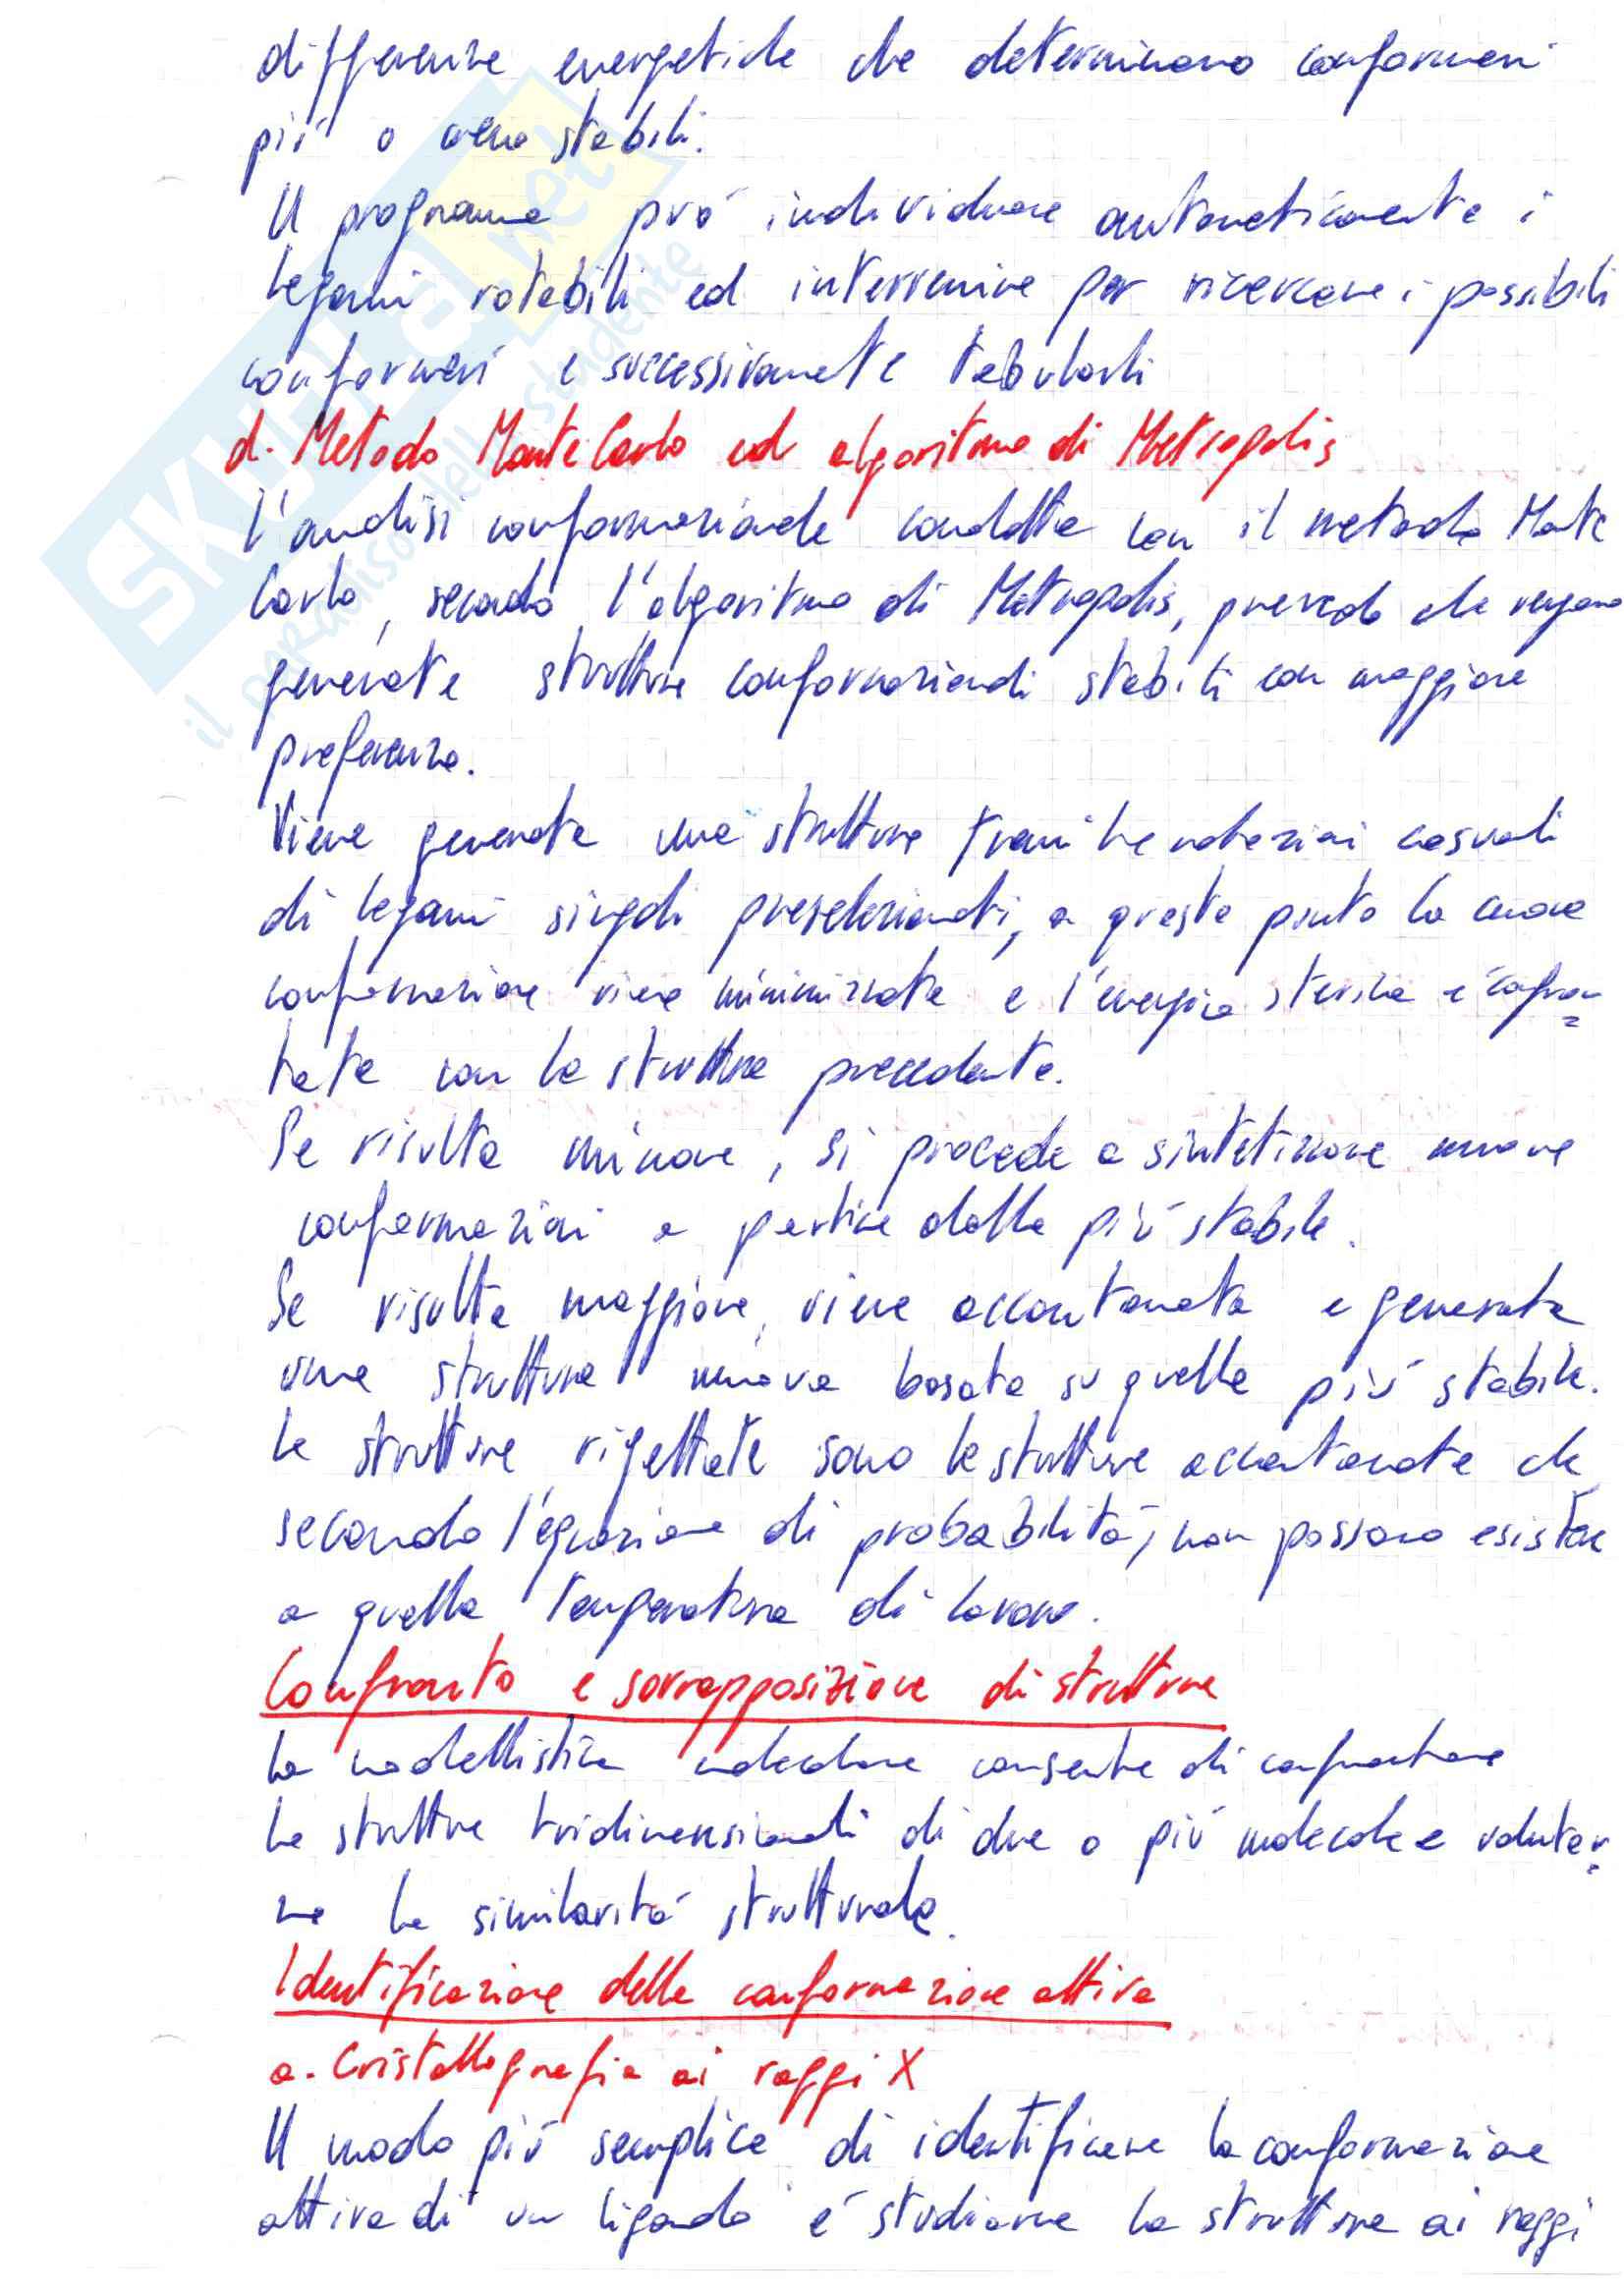 differenze energetiche che determinano conformeri
più o meno stabili.
Il programma può individuare automaticamente i
legami rotabili ed intervenire per ricercare i possibili
conformeri e successivamente tabularli
d. Metodo MonteCarlo ed algoritmo di Metropolis
L'analisi conformazionale condotta con il metodo Monte
Carlo, secondo l'algoritmo di Metropolis, prevede che vengano
generate strutture conformazionali stabili con maggiore
preferenza.
Viene generata una struttura tramite rotazioni casuali
di legami singoli preselezionati, a questo punto la nuova
conformazione viene minimizzata e l'energia sterica è confron=
tata con la struttura precedente.
Se risulta minore, si procede a sintetizzare nuove
conformazioni a partire dalla più stabile.
Se risulta maggiore, viene accantonata e generata
una struttura nuova basata su quella più stabile.
Le strutture rigettate sono le strutture accantonate che
secondo l'equazione di probabilità, non possono esistere
a quella temperatura di lavoro.
Confronto e sovrapposizione di strutture
La modellistica molecolare consente di confrontare
le strutture tridimensionali di due o più molecole e valutar=
ne la similarità strutturale.
Identificazione della conformazione attiva
a. Cristallografia ai raggi X
Il modo più semplice di identificare la conformazione
attiva di un ligando è studiarne la struttura ai raggi
SKUOLA.net
il paradiso dello studente